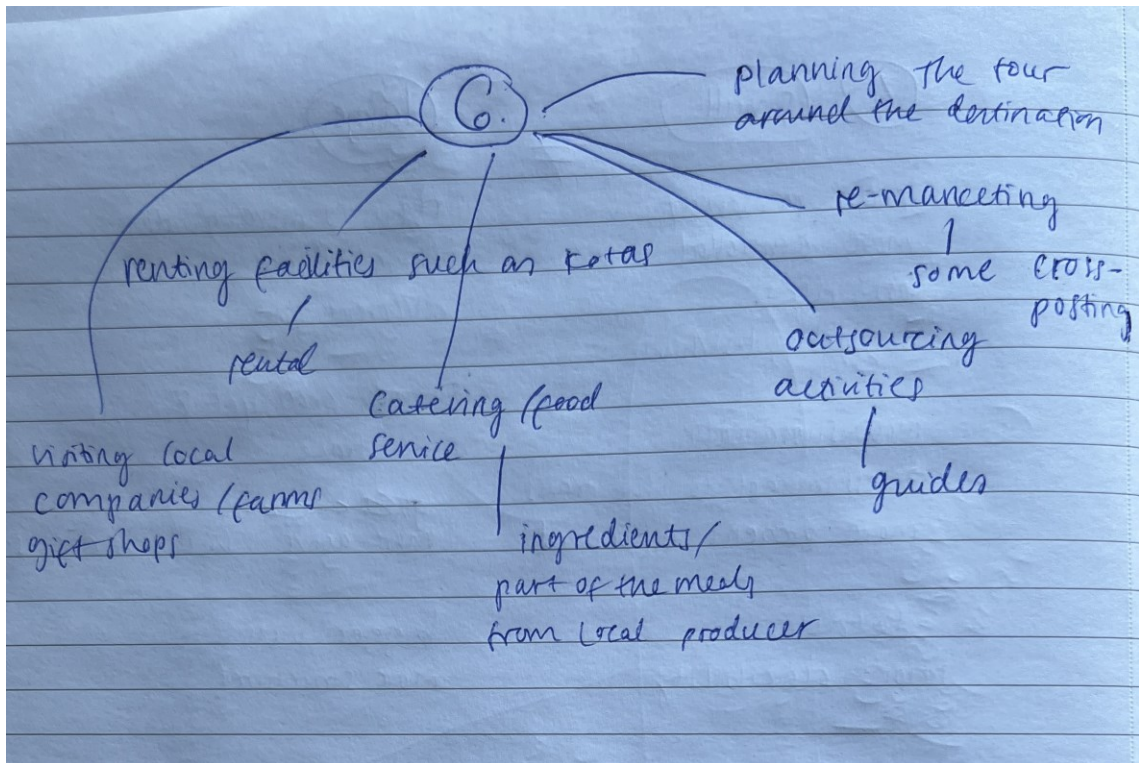 6.
planning the tour
around the destination
re-marketing
some cross-
posting
renting facilities such as kotas
rental
outsourcing
activities
guides
catering/food
service
ingredients/
part of the meals
from local producer
visiting local
companies/farms
gift shops